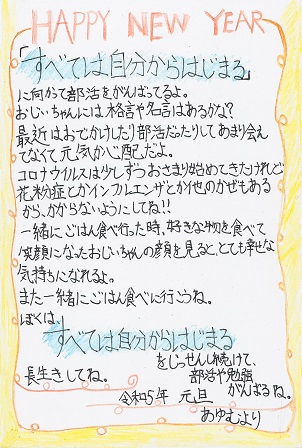 HAPPY NEW YEAR
「すべては自分からはじまる」
に向かって部活をがんばってるよ。
おじいちゃんには格言や名言はあるかな？
最近はおでかけしたり部活だったりしてあまり会え
てなくて元気か心配だよ。
コロナウイルスは少しずつおさまり始めてきたけれど
花粉症とかインフルエンザとか他のかぜもある
から、かからないようにしてね!!
一緒にごはん食べ行った時、好きな物を食べて
笑顔になったおじいちゃんの顔を見ると、とても幸せな
気持ちになれるよ。
また一緒にごはん食べに行こうね。
ぼくは、
すべては自分からはじまる
をじっせんし続けて、
部活や勉強
がんばるね。
長生きしてね。
令和5年 元旦
あゆむより